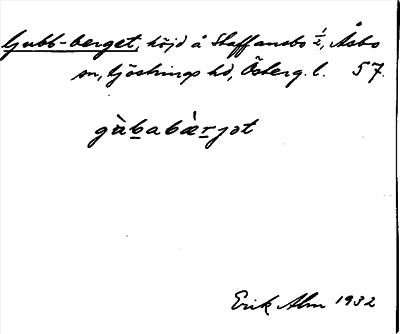 Gubb-berget, höjd å Staffansbo 1/2, Åsbo
sn, Göstrings hd, Österg. l. 57.
gùbabæ̀rjət
Erik Alm 1932